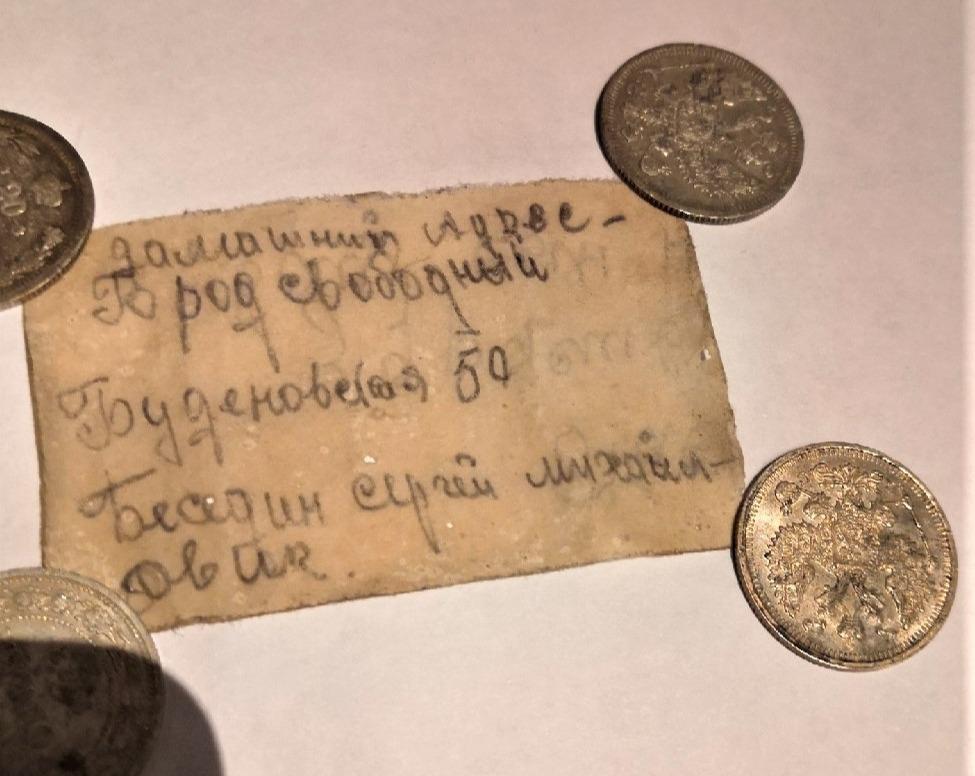 домашний Адрес-
Город свободный
Буденовская 50
Беседин сергей михаил-
ович